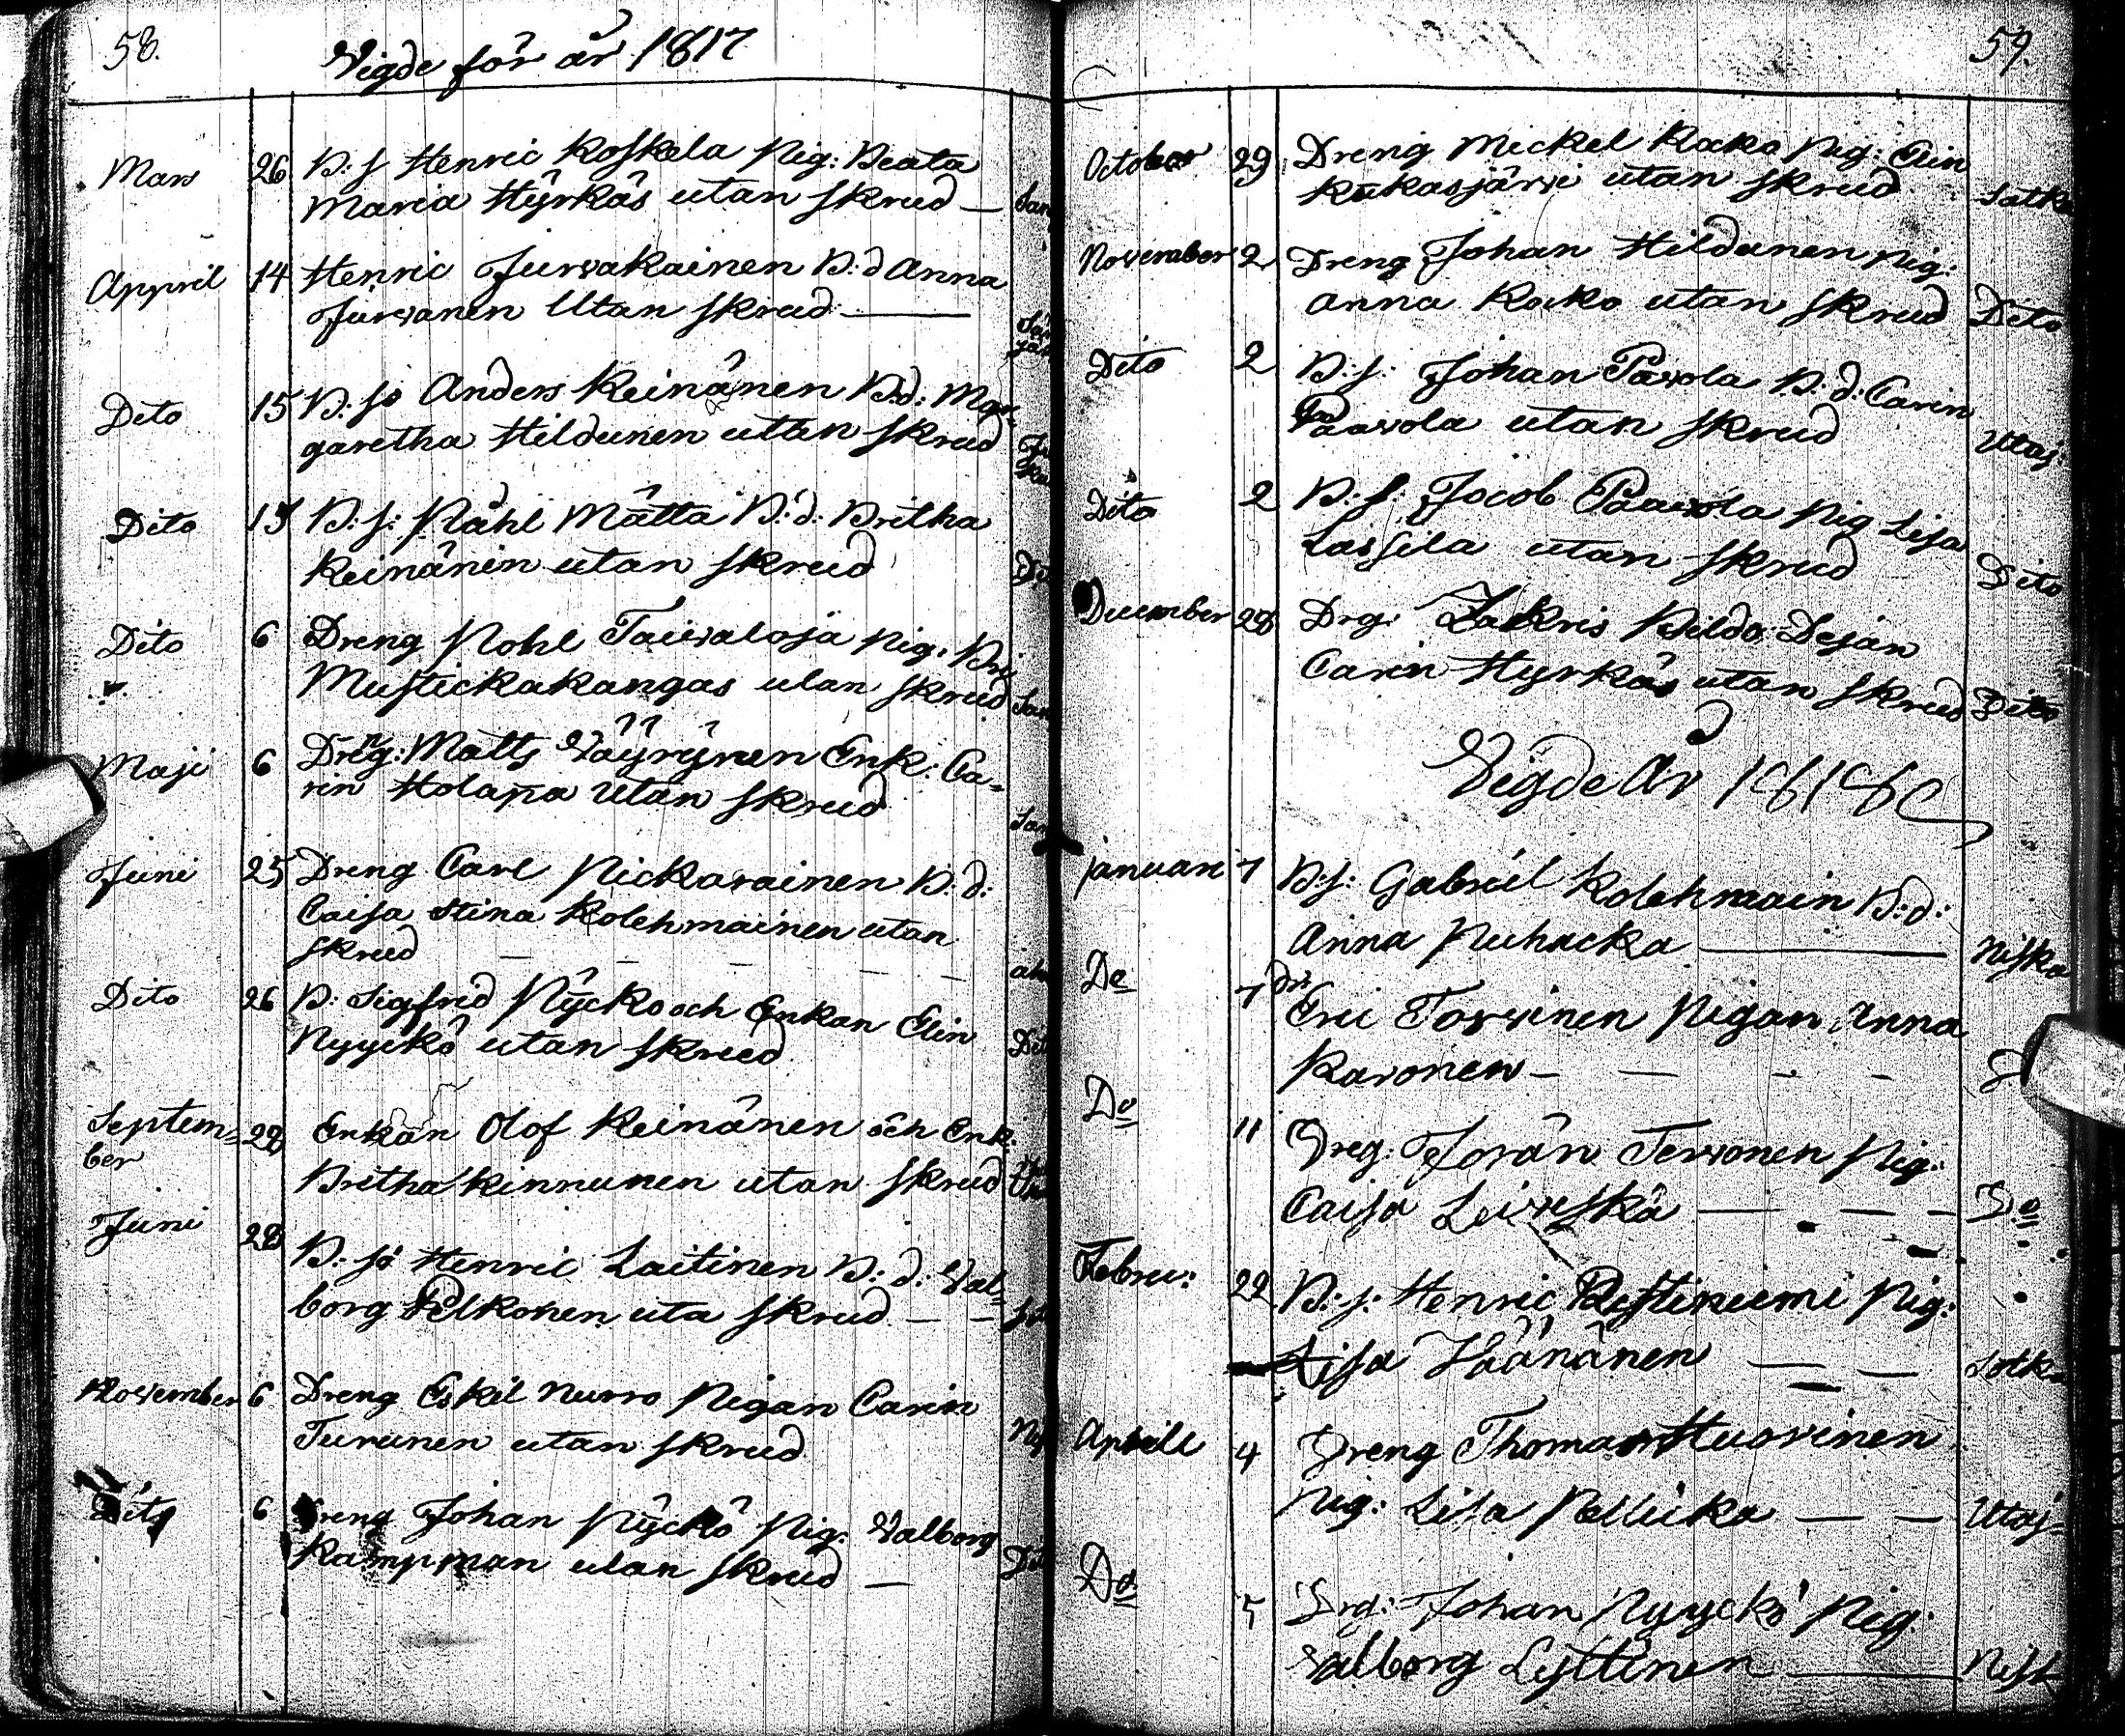 58.
Vigde för år 1817
Mars 26 B: s Henric Koskela Pig: Beata
Maria Hyrkäs utan skrud —
Appril 14 Henric Jurvakainen B: d Anna
Jurvanen Utan skrud —
Dito 15 B: so Anders Keinänen B.d: Mar-
garetha Hildunen uttan skrud
Dito 15 B: s: Påhl Mätta B: d: Britha
Keinänin utan skrud
Dito 6 Dreng Pohl Taivaloja Pig: Bri
Mustickakangas utan skrud
Maji 6 Dreng: Matts Väyrynen Enk: Ca-
rin Holapa utan skrud
Juni 25 Dreng Carl Pickarainen B: d:
Caisa Stina Kolehmainen utan
skrud — — — — —
Dito 26 B: Sigfrid Pycko och Enkan Elin
Nyyckö utan skrud
Septem- 28 Enkan Olof Keinänen och Enk:
ber
Britha Kinnunen utan skrud
Juni 28
B: so Henric Laitinen B: d: Val-
borg Pelkonen uta skrud — —
November 6 Dreng Eskil Nurro Pigan Carin
Turunen utan skrud
Dito 6 Dreng Johan Pyckö Pig: Valborg
Kampman utan skrud —
59.
October 29 Dreng Mickel Kocko Pig: Elin
Kukasjärvi utan skrud
November 2 Dreng Johan Hildunen Pig:
Anna Kocko utan skrud Dito
Dito 2 B: s: Johan Pavola B: d: Carin
Paavola utan skrud Utaj:
Dito 2 B: s: Jocob Paavola Pig Lisa
Lassila utan skrud Dito
December 28 Drg: Zakris Pildo Dejan
Carin Hyrkäs utan skrud Dito
Vigde År 1818
januari 7 B: s: Gabriel Kolehmain B: d:
Anna Puhacka — Niska
Do 7 Dr
Eric Torvinen Pigan Anna
Karonen — — — —
Do 11 Dreg: Jorän Tervonen Pig:
Caisa Leiveskä — — — Do
Febru: 22 B: s: Henric Ristiniemi Pig:
Lisa Väänänen — — Sotk
Aprill 4 Dreng Thomas Huovinen
Pig: Lisa Pellicka — — Utaj
Do 5 Drg: Johan Nyyckö Pig:
Valborg Lyttinen — Nisk